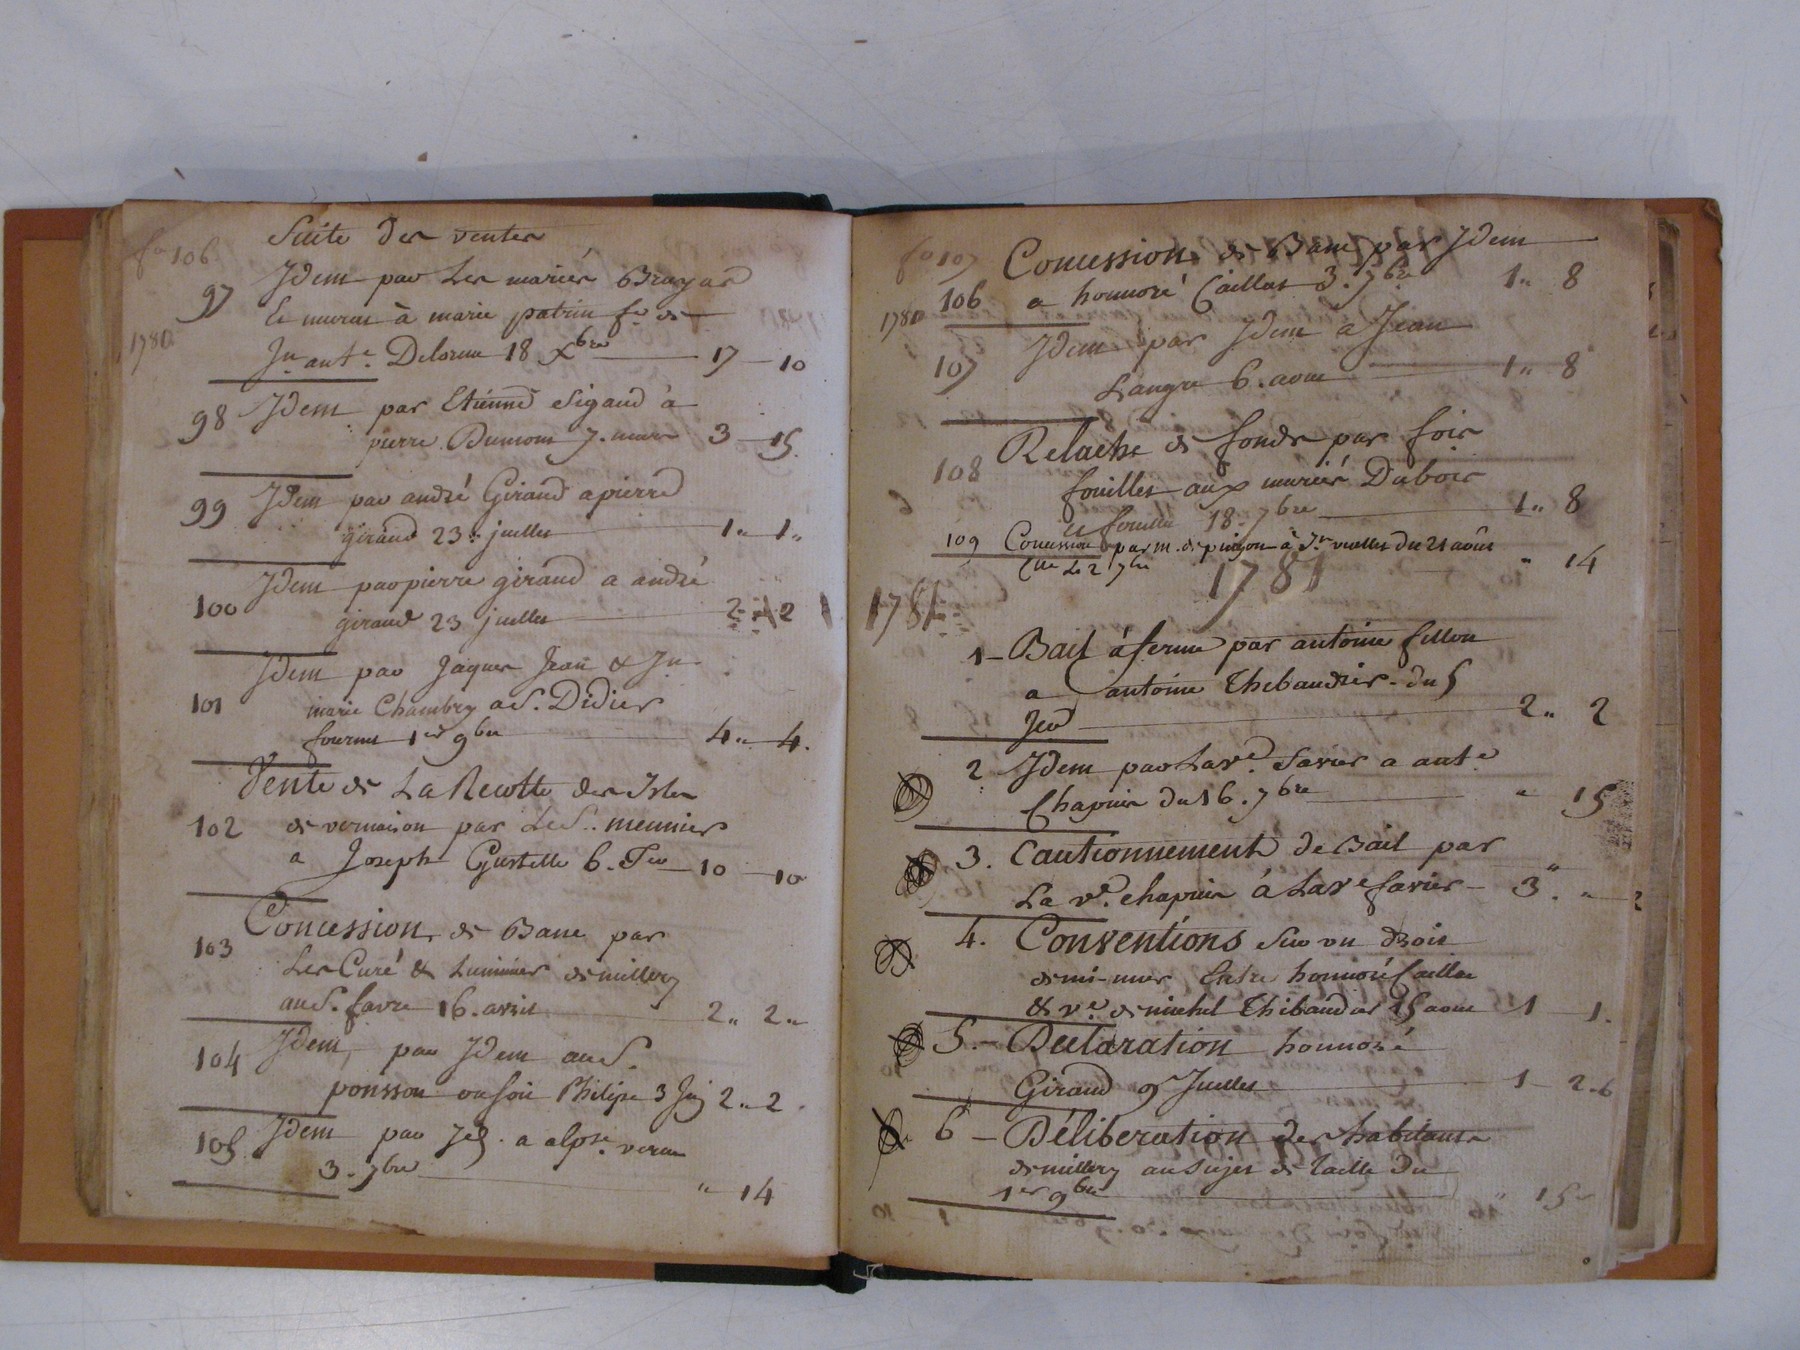 fo 106
Suite des ventes
97 Idem par Les mariés Brayar
1780
et muras à marie patrin fe de
Jn ante. Delorme 18 Xbre 17 10
98 Idem par Etienne Sigaud à
pierre Dumont 7. mars 3 15.
99 Idem par andré Giraud a pierre
giraud 23. juillet 1 " 1 "
Idem par pierre giraud a andré
100 giraud 23 juillet 2 " 2
Idem par Jaques Jean & Jn
101 marie Chambry a S. Didier
fournet 1er 9bre 4 " 4.
Vente de La Recolte des Isles
102 de vernaison par Le S. meunier
a Joseph Gustelle 6. 10 10
Concession de Banc par
103 Les Curé & Luminier de millery
au S. favre 16. avril 2 " 2 "
104 Idem, par Idem au S.
ponsson ou soit Philipe 3 2 " 2
105 Idem par Id. a
3. 7bre " 14
fo 107
Concession de Banc par Idem
106 a honnoré Caillat 3. 7bre 1 " 8
1780
Idem par Idem a Jean
107 Langre 6. aout 1 " 8
Relache de fonds par fois
108 fouillet aux mariés Dubois
et fouillet 18. 7bre 1 " 8
109 Concession par m. de à Jn du 21 août
Clle Le 2 7bre " 14
1781
1781
1 - Bail à ferme par antoine fillon
a antoine Thibaudier du 5
2 " 2
2 Idem par La ve. favier a ante
Chapuis du 16. 7bre " 15
3. Cautionnement de Bail par
La ve. chapuis à La ve favier 3 "
4. Conventions sur un droit
de mi-mur Entre honnoré Caillat
& ve. de michel Thibaudier 15 aout 1 1.
5. - Declaration honnoré
Giraud 9 Juillet 1 2 . 6
6 - Déliberation des habitants
de millery au sujet de taille du
1er 9bre " 15